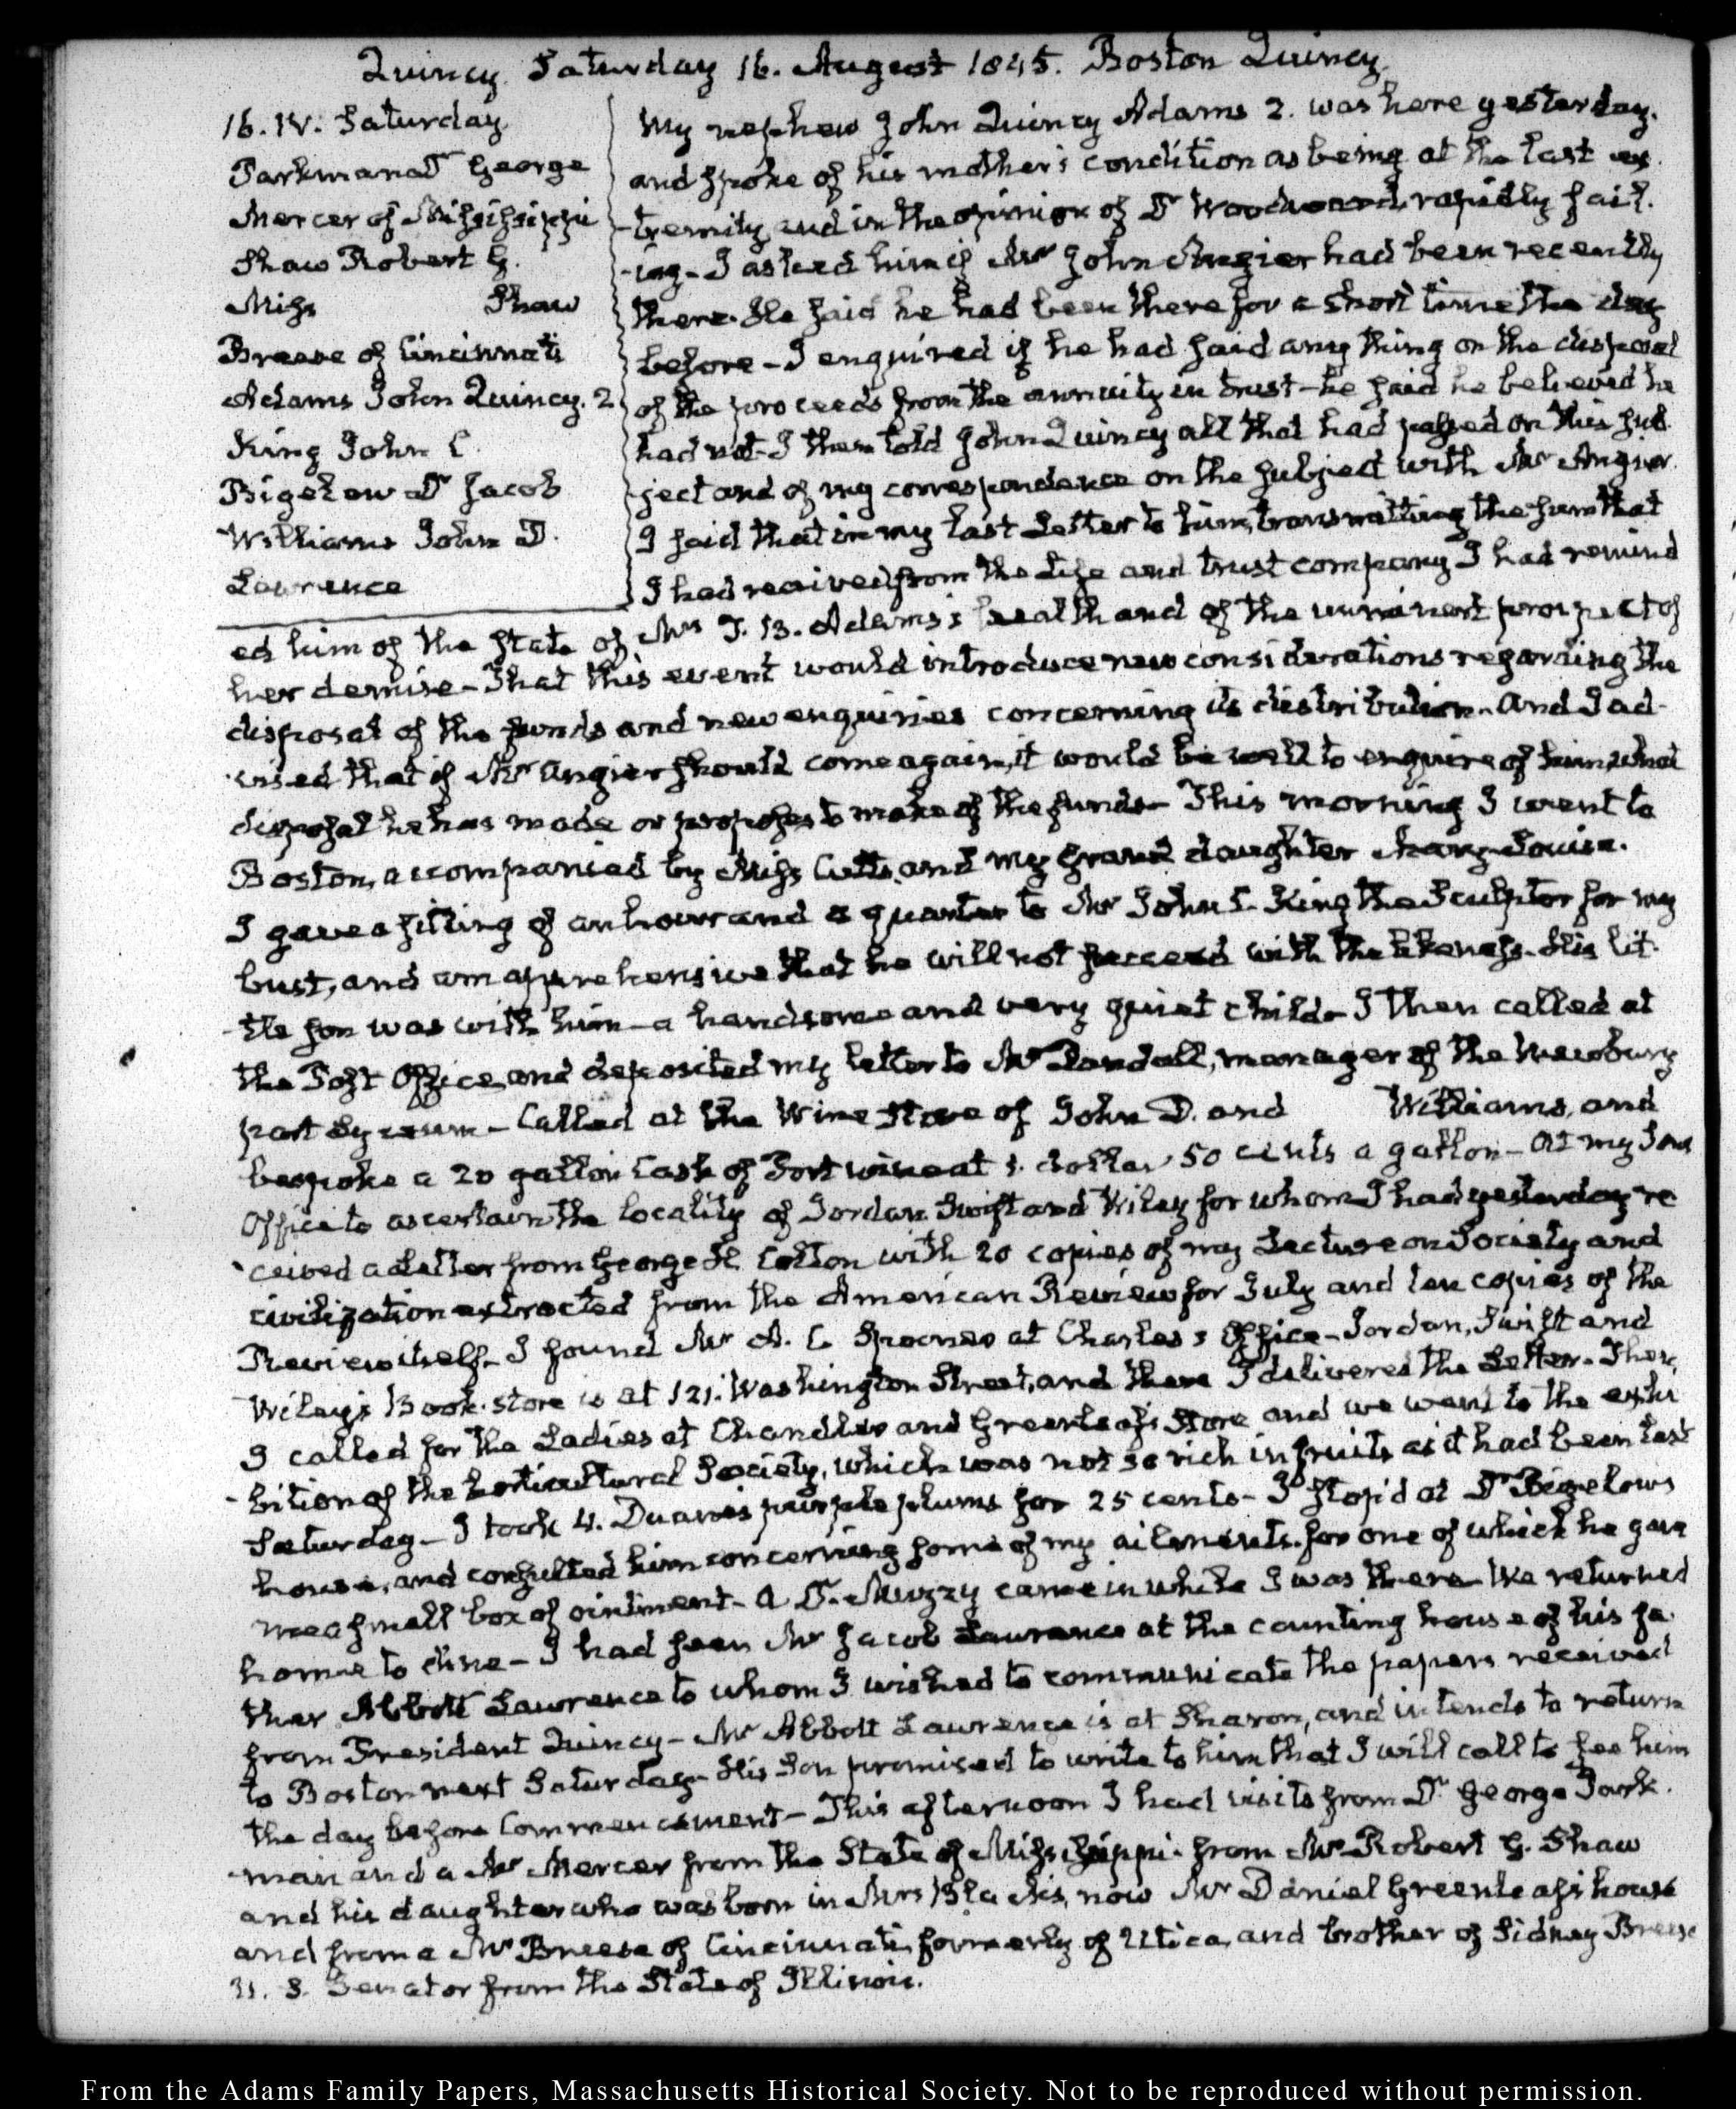 Quincy. Saturday 16. August 1845. Boston Quincy.
16. IV. Saturday
Parkman Dr. George
Mercer of Missisippi
Shaw Robert G.
Miss Shaw
Breese of Cincinnati
Adams John Quincy. 2
King John C.
Bigelow Dr. Jacob
Williams John D.
Lawrence
My nephew John Quincy Adams 2. was here yesterday.
and spoke of his mother's condition as being at the last ex-
-tremity, and in the opinion of Dr. Woodward, rapidly fail-
-ing - I asked him if Mr. John Angier had been recently
there. He said he had been there for a short time the day
before - I enquired if he had said any thing on the disposal
of the proceeds from the annuity in trust - he said he believed he
had not - I then told John Quincy all that had passed on this sub-
-ject and of my correspondence on the subject with Mr. Angier.
I said that in my last Letter to him, transmitting the sum that
I had received from the Life and trust company I had remind
ed him of the state of Mrs. T. B. Adams's health and of the imminent prospect of
her demise - That this event would introduce new considerations regarding the
disposal of the funds and new enquiries concerning its distribution. And I ad-
-vised that if Mr. Angier should come again, it would be well to enquire of him, what
disposal he has made or proposes to make of the funds - This morning I went to
Boston, accompanied by Miss Cutts, and my grand daughter Mary-Louisa.
I gave a sitting of an hour and a quarter to Mr. John C. King the Sculptor for my
bust, and am apprehensive that he will not succeed with the likeness. His lit-
-tle son was with him - a handsome and very quiet child - I then called at
the Post Office and deposited my letter to Mr. Randall, manager of the Newbury
port Lyceum - Called at the Wine Store of John D. and Williams, and
bespoke a 20 gallon Cask of Port wine at 1. dollar 50 cents a gallon - At my Son's
Office to ascertain the locality of Jordan Swift and Wiley for whom I had yesterday re
-ceived a Letter from George H. Colton with 20 copies of my Lecture on Society and
civilization extracted from the American Review for July and ten copies of the
Review itself. I found Mr. A. C. Spooner at Charles's Office - Jordan, Swift and
Wiley's Book-store is at 121. Washington Street, and there I delivered the Letter. Then
I called for the Ladies at Chandler and Greenleaf's Store and we went to the exhi
-bition of the horticultural Society, which was not so rich in fruits as it had been last
Saturday - I took 4. Duane's purple plums for 25 cents - I stop'd at Dr. Bigelows
house, and consulted him concerning some of my ailments. for one of which he gave
me a small box of ointment - A Dr. Muzzy came in while I was there - We returned
home to dine - I had seen Mr. Lawrence at the counting house of his fa-
ther Abbott Lawrence to whom I wished to communicate the papers received
from President Quincy - Mr. Abbott Lawrence is at Sharon, and intends to return
to Boston next Saturday - His Son promised to write to him that I will call to see him
the day before Commencement - This afternoon I had visits from Dr. George Park-
-man and a Mr. Mercer from the State of Missisippi - from Mr. Robert G. Shaw
and his daughter who was born in Mrs. now Mr. Daniel Greenleaf's house
and from a Mr. Breese of Cincinnati, formerly of Utica, and brother of Sidney Breese
U. S. Senator from the State of Illinois.
From the Adams Family Papers, Massachusetts Historical Society. Not to be reproduced without permission.